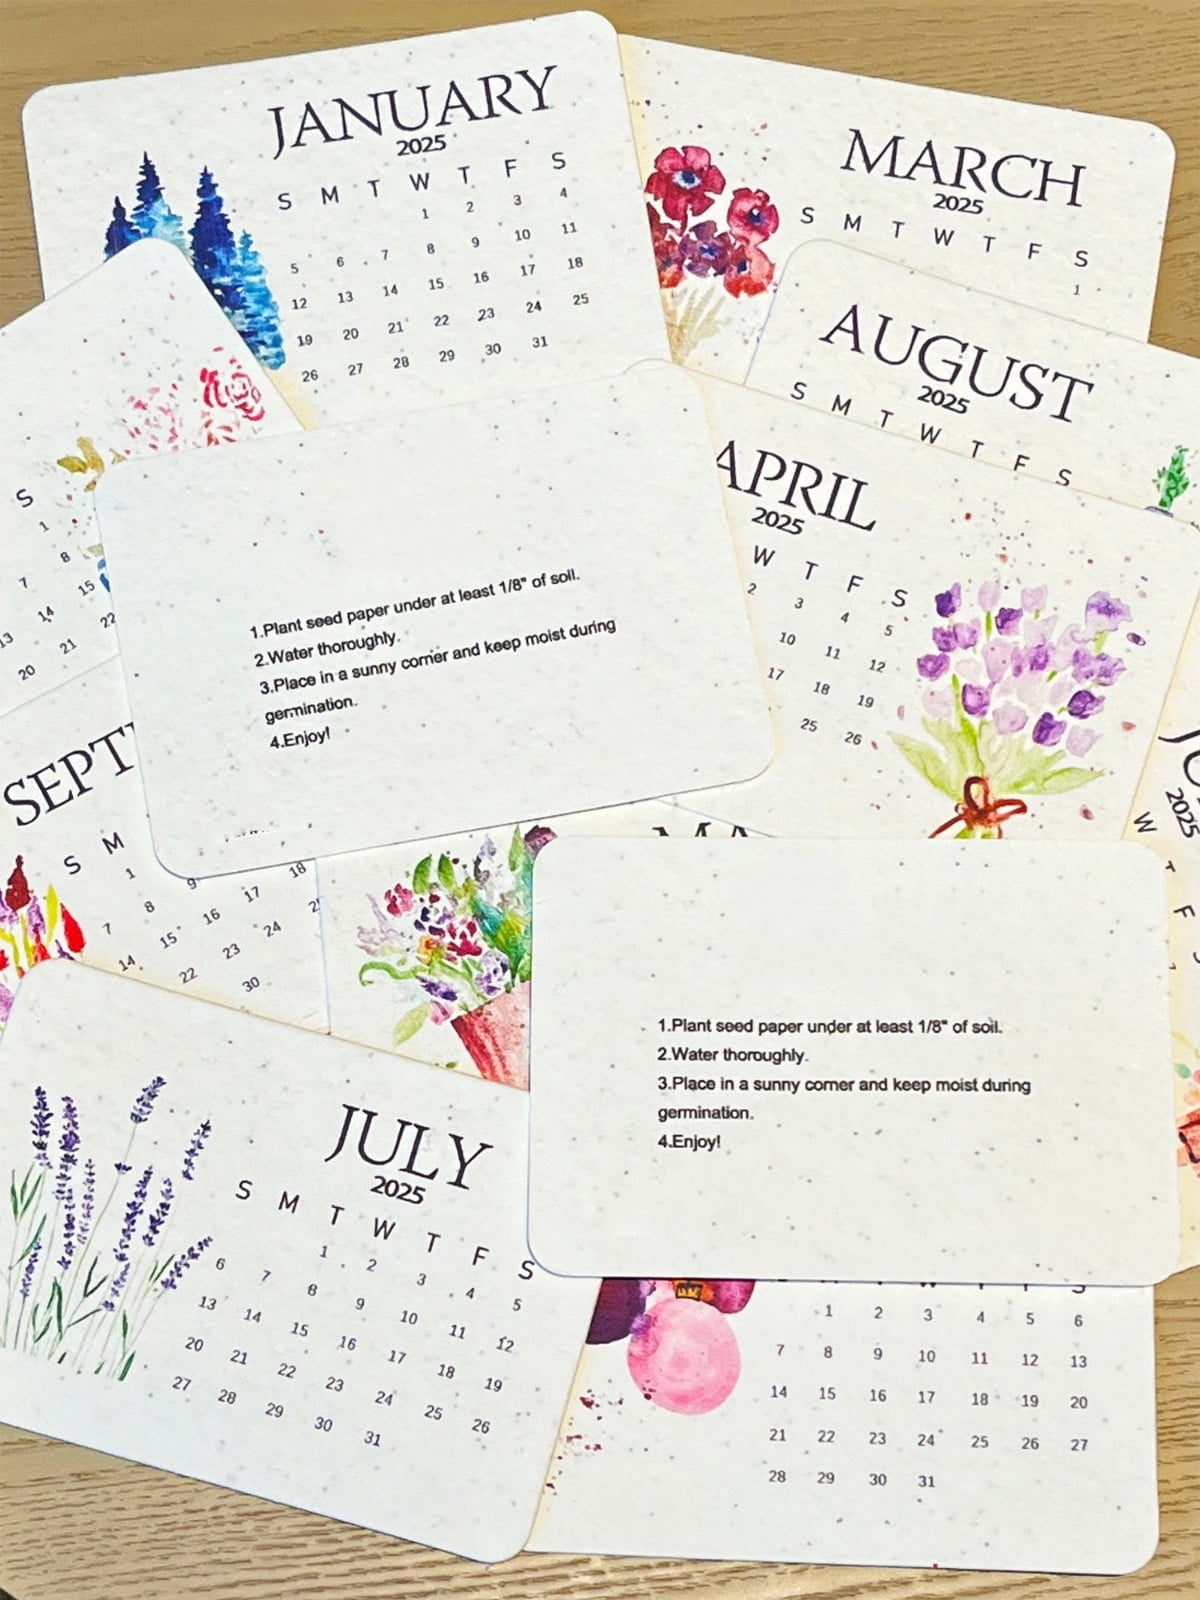 JANUARY
2025
S M T W T F S
1 2 3 4
5 6 7 8 9 10 11
12 13 14 15 16 17 18
19 20 21 22 23 24 25
26 27 28 29 30 31
MARCH
2025
S M T W T F S
1
AUGUST
2025
S M T W T F S
APRIL
2025
W T F S
2 3 4 5
10 11 12
17 18 19
25 26
S
1
7 8
14 15
13 21 22
20
1.Plant seed paper under at least 1/8" of soil.
2.Water thoroughly.
3.Place in a sunny corner and keep moist during
germination.
4.Enjoy!
SEPT
S M
1
7 8 9
14 15 16 17 18
22 23 24
30
2025
W T F
1.Plant seed paper under at least 1/8" of soil.
2.Water thoroughly.
3.Place in a sunny corner and keep moist during
germination.
4.Enjoy!
JULY
2025
S M T W T F S
1 2 3 4 5
6 7 8 9 10 11 12
13 14 15 16 17 18 19
20 21 22 23 24 25 26
27 28 29 30 31
1 2 3 4 5 6
7 8 9 10 11 12 13
14 15 16 17 18 19 20
21 22 23 24 25 26 27
28 29 30 31